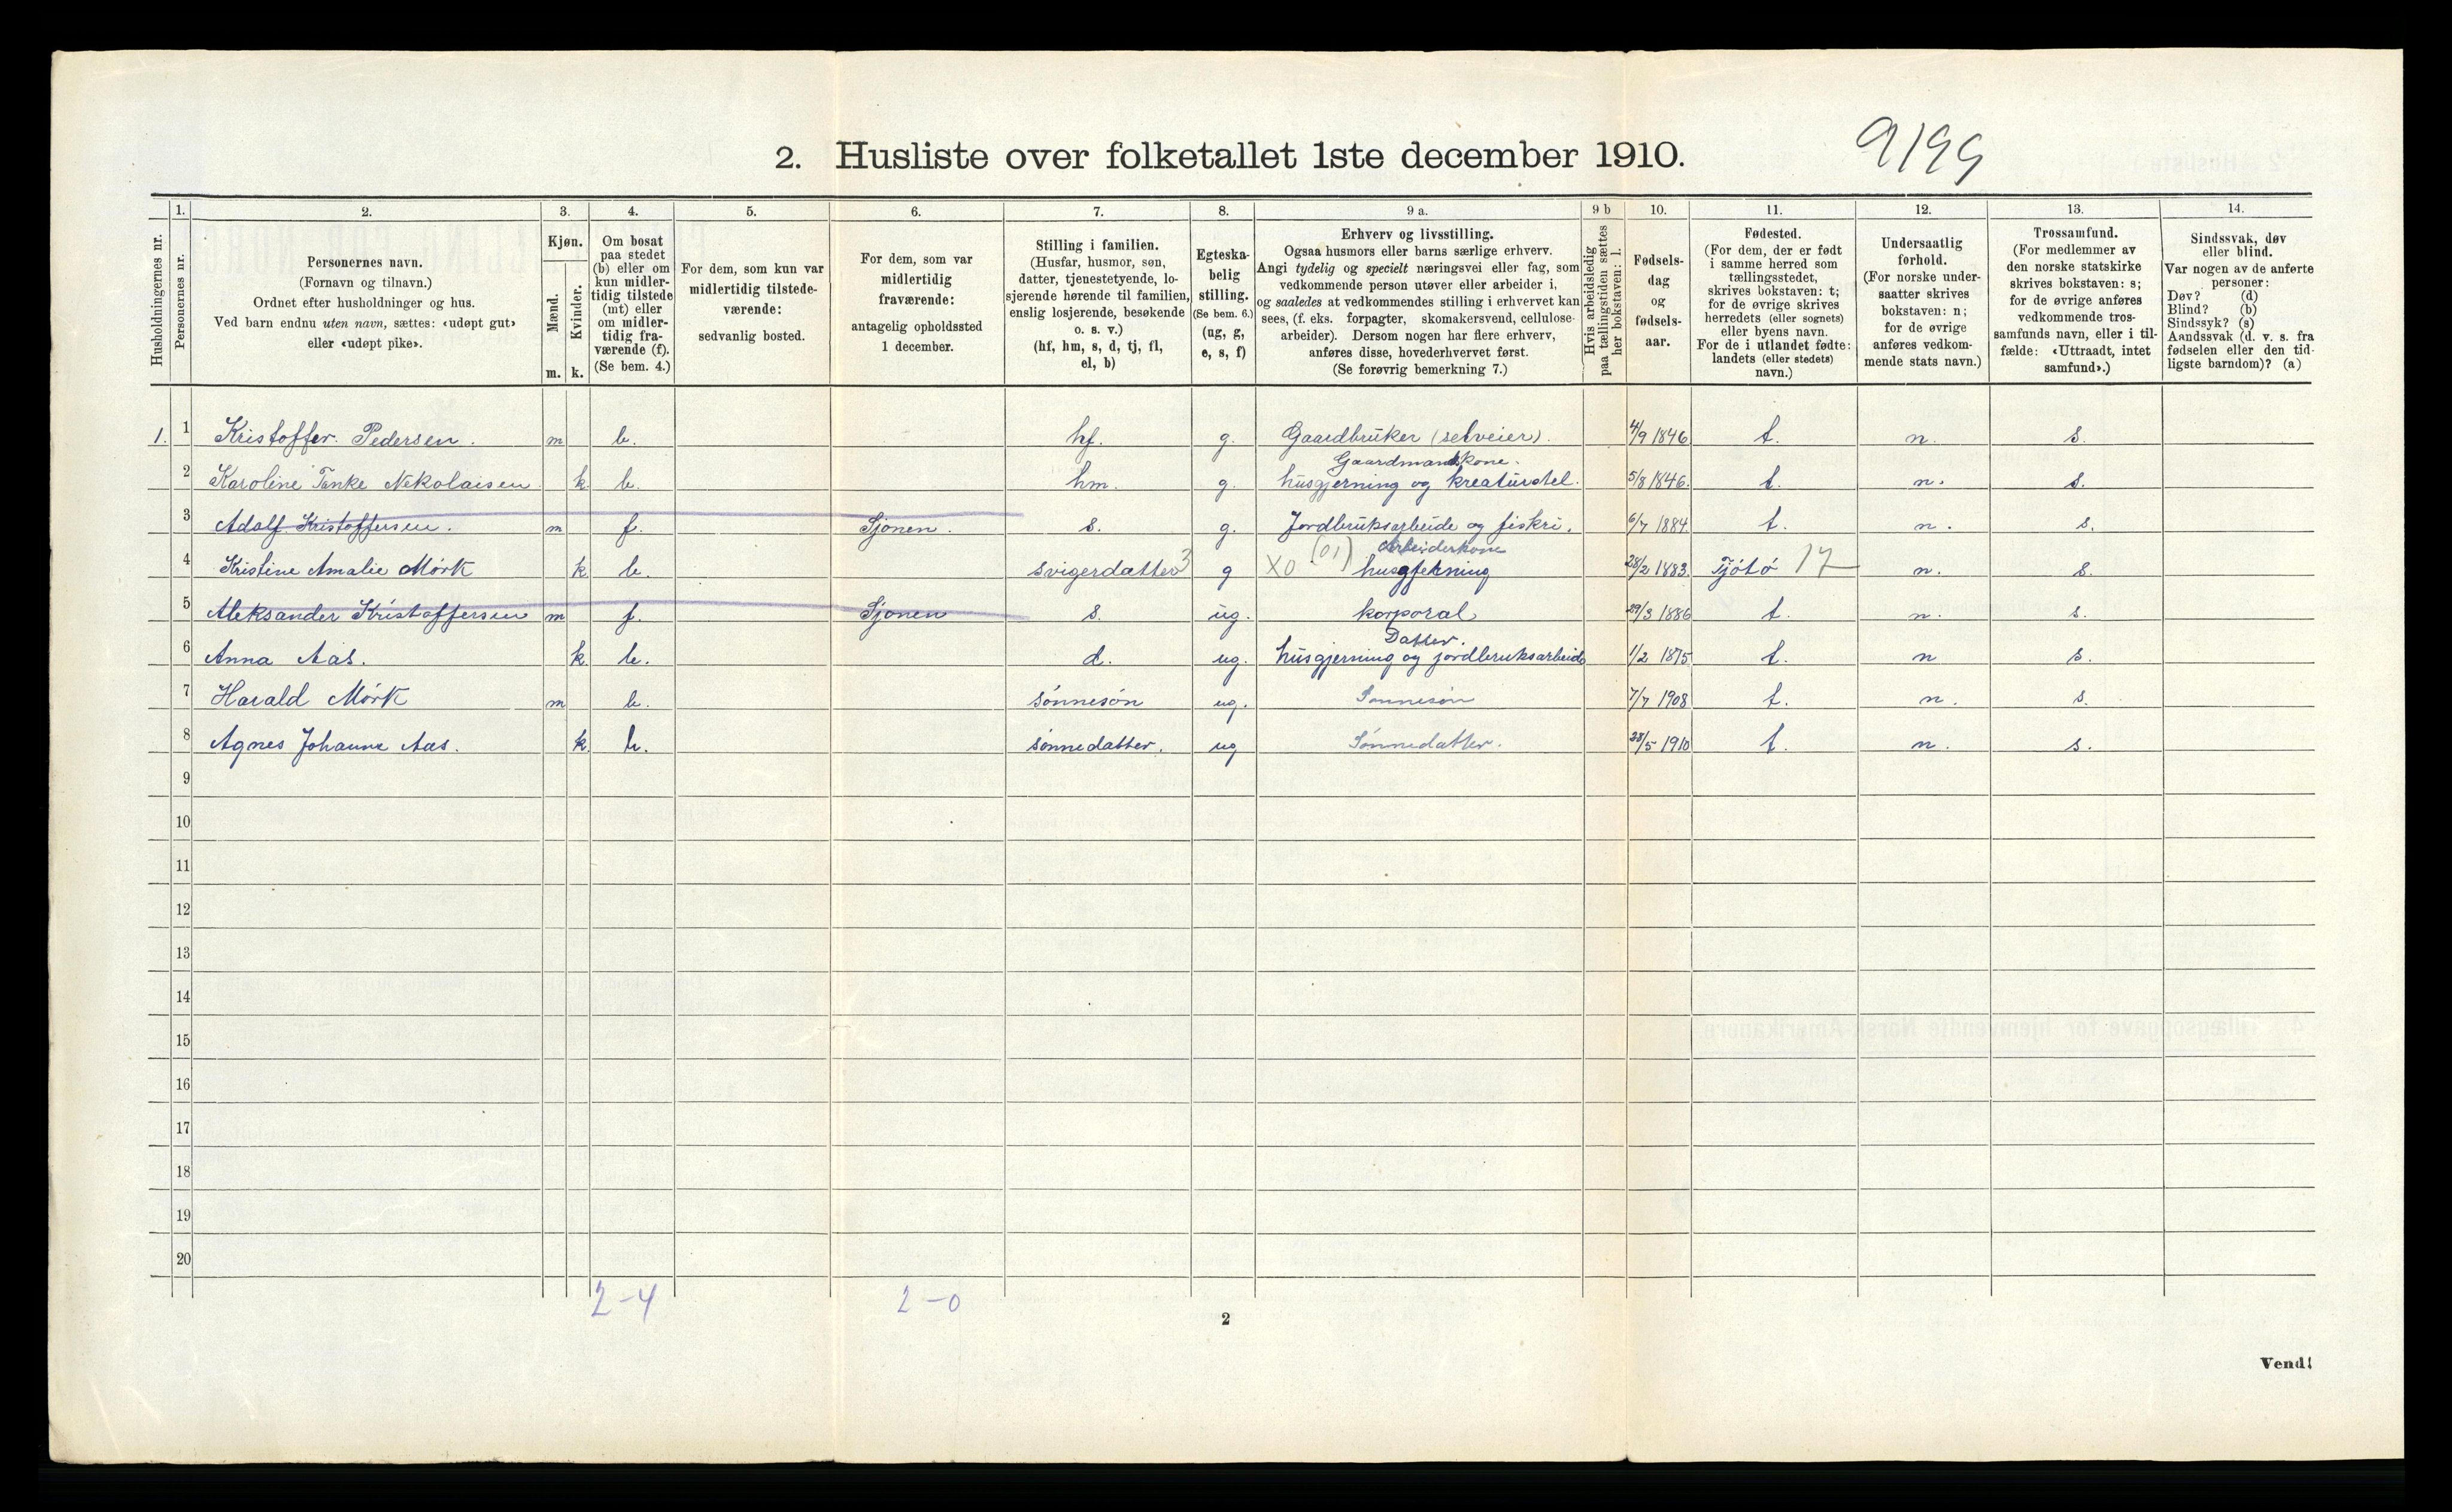 2. Husliste over folketallet 1ste december 1910.
9199
1. 2. 3. 4. 5. 6. 7. 8. 9 a. 9 b 10. 11. 12. 13. 14.
Husholdningernes nr.
Personernes nr.
Personernes navn.
(Fornavn og tilnavn.)
Ordnet efter husholdninger og hus.
Ved barn endnu uten navn, sættes: «udøpt gut»
eller «udøpt pike».
Kjøn.
Mænd.
Kvinder.
m. k.
Om bosat
paa stedet
(b) eller om
kun midler-
tidig tilstede
(mt) eller
om midler-
tidig fra-
værende (f).
(Se bem. 4.)
For dem, som kun var
midlertidig tilstede-
værende:
sedvanlig bosted.
For dem, som var
midlertidig
fraværende:
antagelig opholdssted
1 december.
Stilling i familien.
(Husfar, husmor, søn,
datter, tjenestetyende, lo-
sjerende hørende til familien,
enslig losjerende, besøkende
o. s. v.)
(hf, hm, s, d, tj, fl,
el, b)
Egteska-
belig
stilling.
(Se bem. 6.)
(ug, g,
e, s, f)
Erhverv og livsstilling.
Ogsaa husmors eller barns særlige erhverv.
Angi tydelig og specielt næringsvei eller fag, som
vedkommende person utøver eller arbeider i,
og saaledes at vedkommendes stilling i erhvervet kan
sees, (f. eks. forpagter, skomakersvend, cellulose-
arbeider). Dersom nogen har flere erhverv,
anføres disse, hovederhvervet først.
(Se forøvrig bemerkning 7.)
Hvis arbeidsledig
paa tællingstiden sættes
her bokstaven: l.
Fødsels-
dag
og
fødsels-
aar.
Fødested.
(For dem, der er født
i samme herred som
tællingsstedet,
skrives bokstaven: t;
for de øvrige skrives
herredets (eller sognets)
eller byens navn.
For de i utlandet fødte:
landets (eller stedets)
navn.)
Undersaatlig
forhold.
(For norske under-
saatter skrives
bokstaven: n;
for de øvrige
anføres vedkom-
mende stats navn.)
Trossamfund.
(For medlemmer av
den norske statskirke
skrives bokstaven: s;
for de øvrige anføres
vedkommende tros-
samfunds navn, eller i til-
fælde: «Uttraadt, intet
samfund».)
Sindssvak, døv
eller blind.
Var nogen av de anførte
personer:
Døv? (d)
Blind? (b)
Sindssyk? (s)
Aandssvak (d. v. s. fra
fødselen eller den tid-
ligste barndom)? (a)
1. 1 Kristoffer Pedersen. m b. hf. g. Gaardbruker (selveier). 4/9 1846 t. n. s.
Gaardmandskone.
2 Karoline Tanke Nekolaisen k b. hm. g. husgjerning og kreaturstel. 5/8 1846. t. n. s.
3 Adolf Kristoffersen. m f. Sjonen. s. g. Jordbruksarbeide og fiskri. 6/7 1884. t. n. s.
Arbeiderkone
4 Kristine Amalie Mörk k b. svigerdatter 3 g X0 (01) husgjerning 28/2 1883. Tjötö 17 n. s.
5 Aleksander Kristoffersen m f. Sjonen s. ug. korporal 29/3 1886 t. n. s.
Datter.
6 Anna Aas. k b. d. ug. husgjerning og jordbruksarbeide 1/2 1875 t. n s.
7 Harald Mörk m b. sönnesön ug. Sönnesön 7/7 1908 t. n. s.
8 Agnes Johanne Aas. k b. sönnedatter. ug Sönnedatter. 23/5 1910 t. n. s.
9
10
11
12
13
14
15
16
17
18
19
20
2-4 2-0
2
Vend!